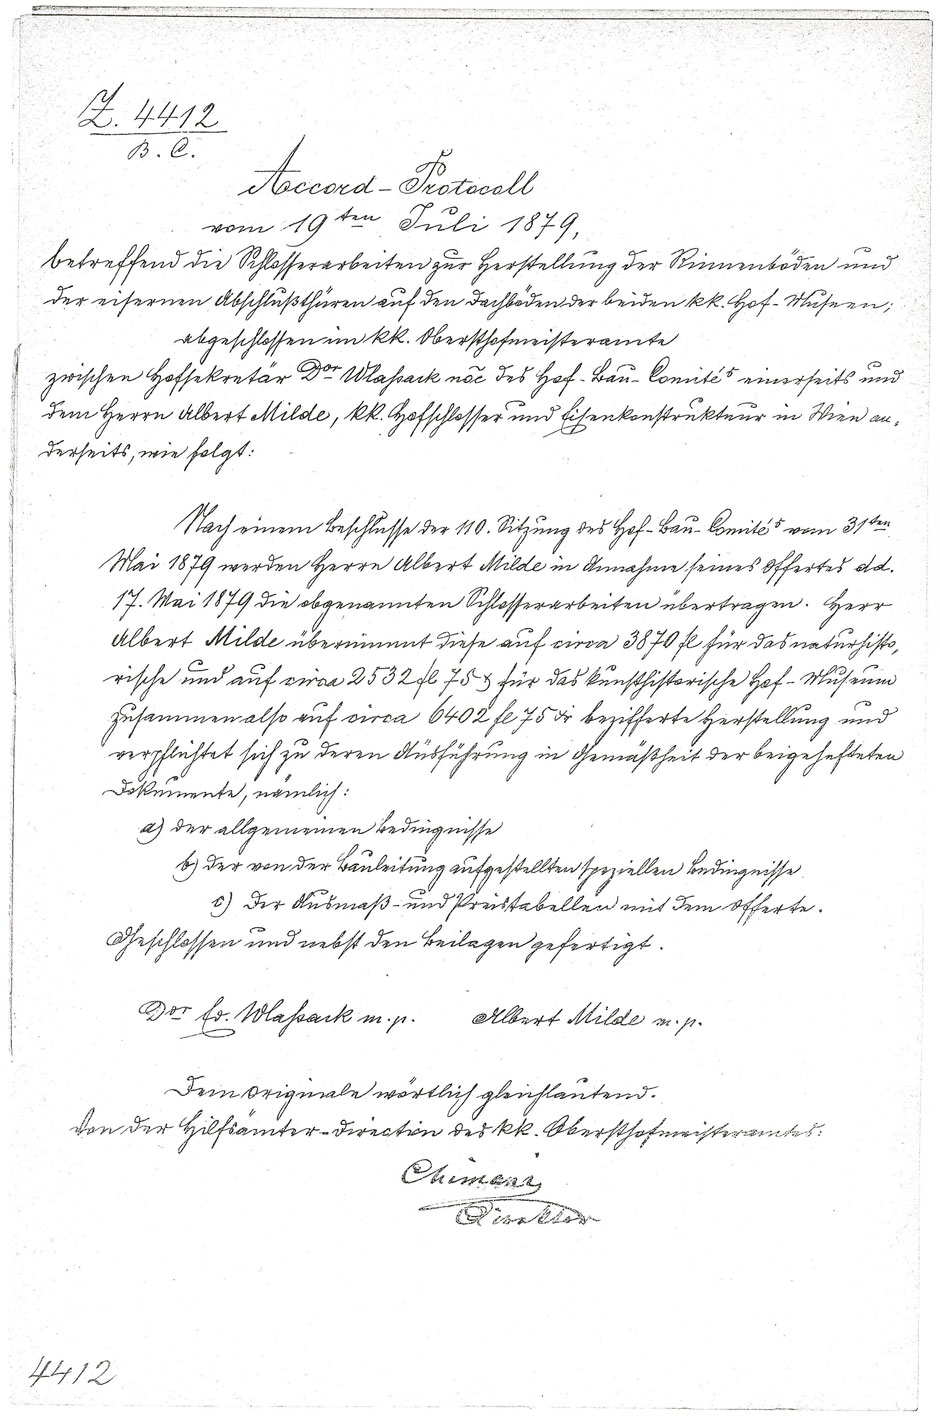 Z. 4412
B. C.
Accord-Protocoll
vom 19ten Juli 1879,
betreffend die Schlosserarbeiten zur Herstellung der Rinnenböden und
der eisernen Abschlußthüren auf den Dachböden der beiden kk. Hof-Museen;
abgeschlossen im kk. Obersthofmeisteramte
zwischen Hofsekretär Dor Wlassack nōe des Hof-Bau-Comités einerseits und
dem Herrn Albert Milde, kk. Hofschlosser und Eisenkonstrukteur in Wien an-
derseits, wie folgt:
Nach einem Beschlusse der 110. Sitzung des Hof-Bau-Comités vom 31ten
Mai 1879 werden Herrn Albert Milde in Annahme seines Offertes dd.
17. Mai 1879 die obgenannten Schlosserarbeiten übertragen. Herr
Albert Milde übernimmt diese auf circa 3870 fl für das naturhisto-
rische und auf circa 2532 fl 75 x für das kunsthistorische Hof-Museum
zusammen also auf circa 6402 fl 75 xr bezifferte Herstellung und
verpflichtet sich zu deren Ausführung in Gemäßheit der beigehefteten
Dokumente, nämlich:
a) der allgemeinen Bedingnisse
b) der von der Bauleitung aufgestellten speziellen Bedingnisse
c) der Ausmaß- und Preistabellen mit dem Offerte.
Geschlossen und nebst den Beilagen gefertigt.
Dor Ed. Wlassack m.p. Albert Milde m.p.
Dem Originale wörtlich gleichlautend.
Von der Hilfsämter-Direction des kk. Obersthofmeisteramtes:
Chimani
Direktor
4412